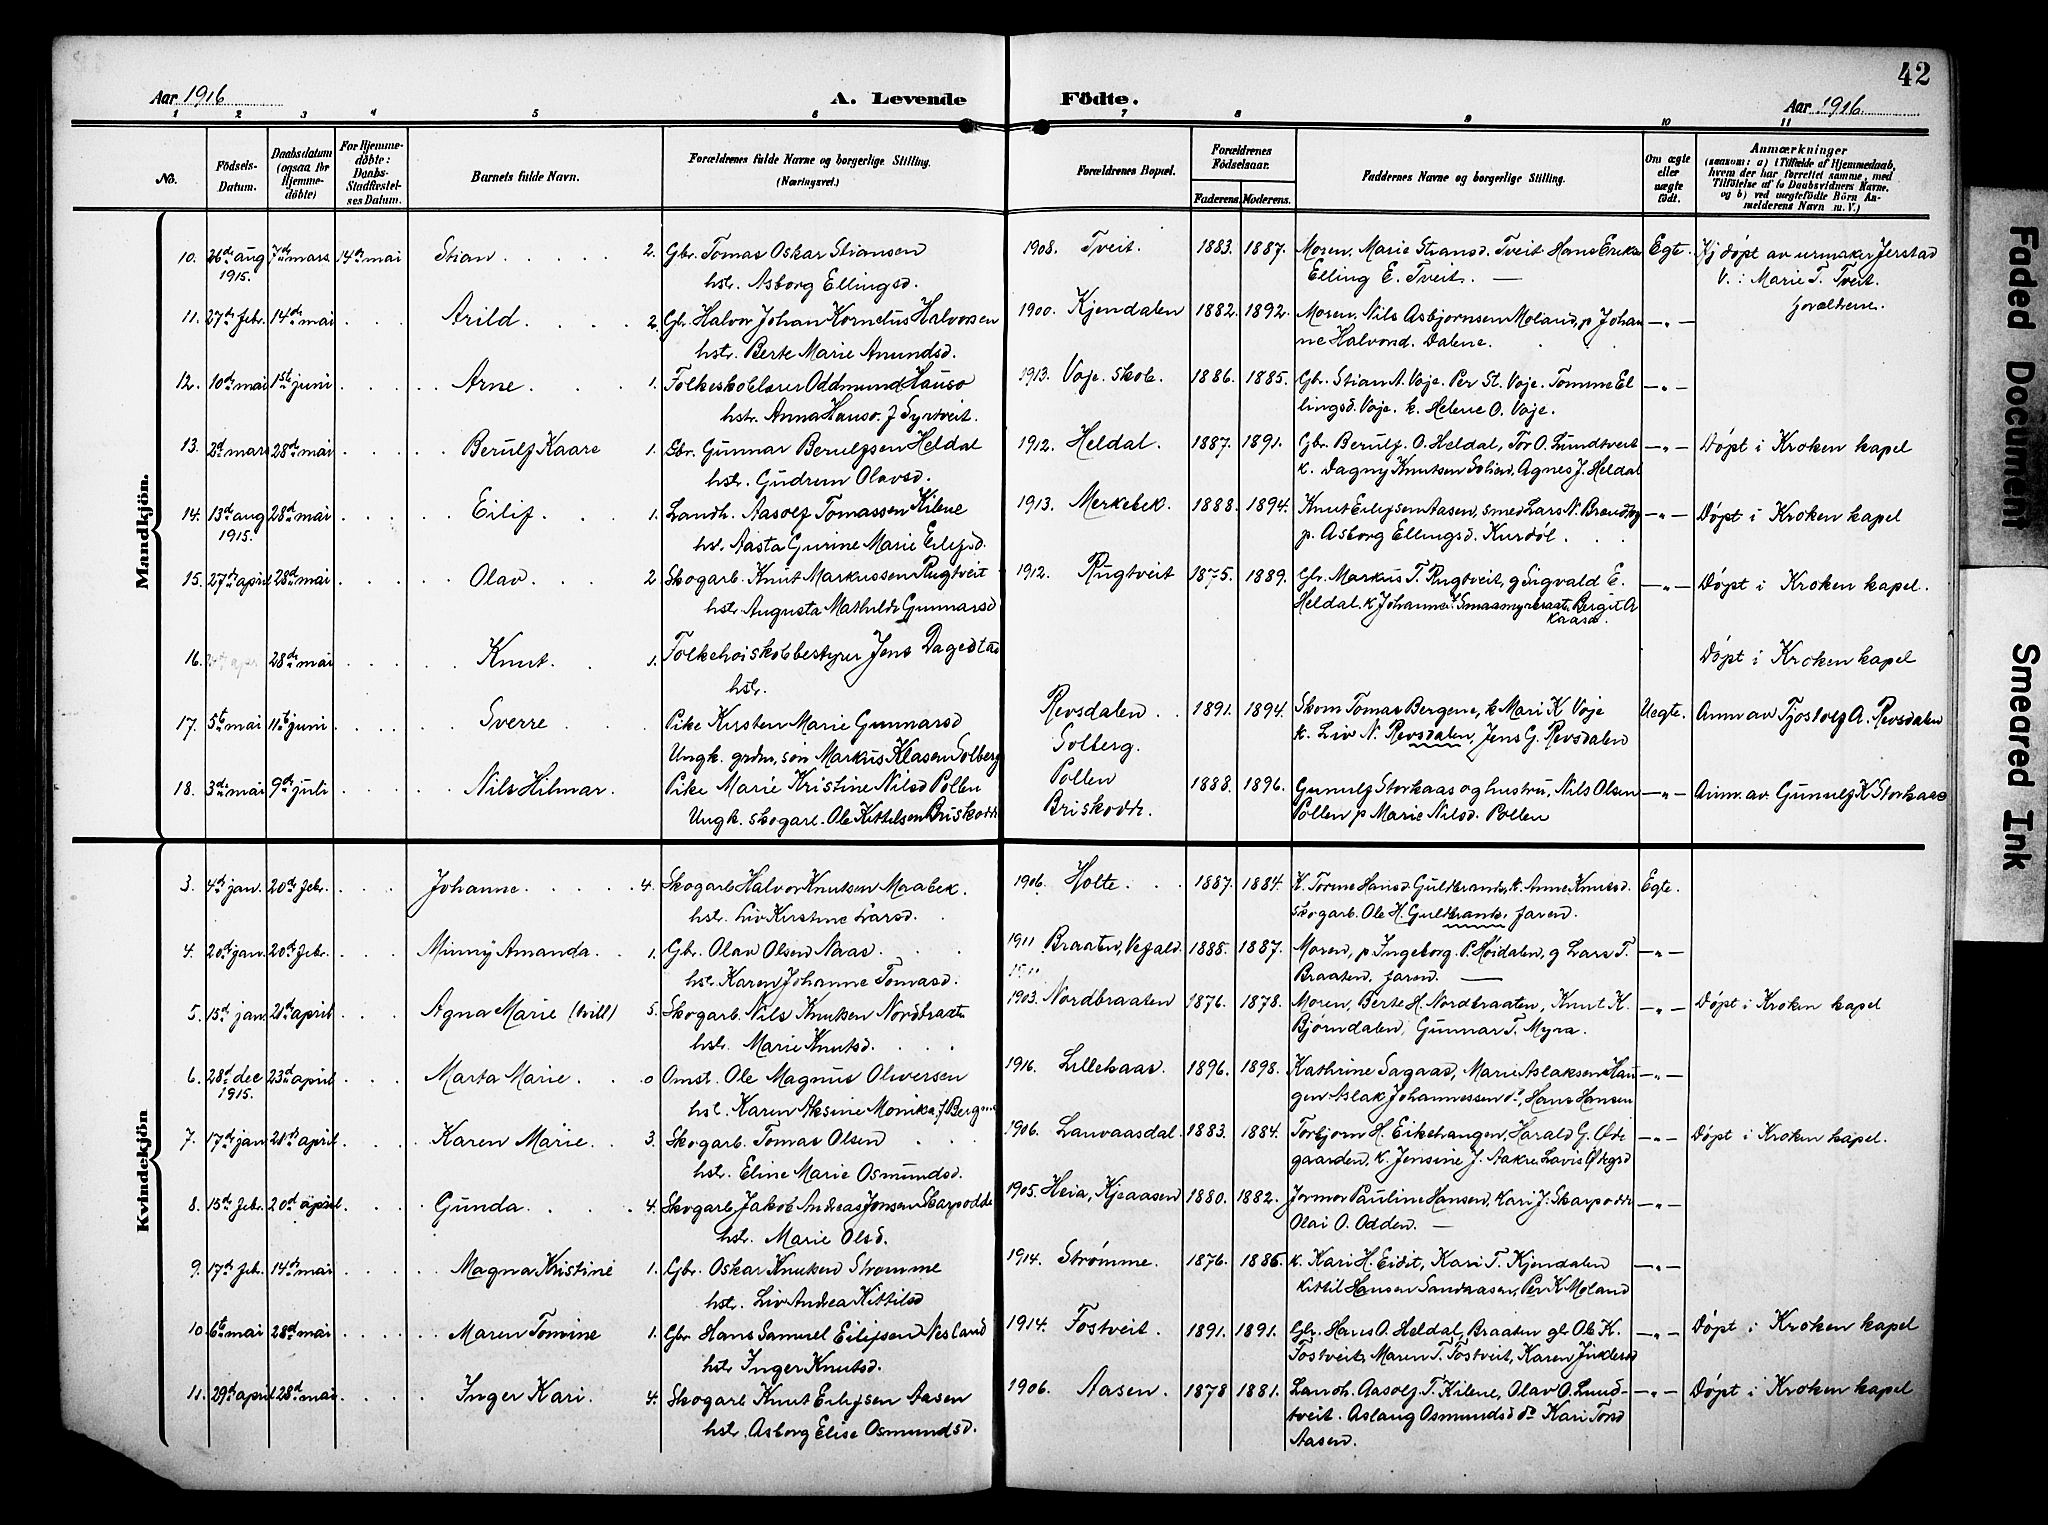 42
Aar 1916
A. Levende Födte.
Aar 1916.
1 2 3 4 5 6 7 8 9 10 11
No.
Födsels-Datum.
Daabsdatum (ogsaa for Hjemmedöbte)
For Hjemmedöbte: Daabs-Stadfæstelses Datum.
Barnets fulde Navn.
Forældrenes fulde Navne og borgerlige Stilling. (Næringsvei.)
Forældrenes Bopæl.
Forældrenes Födselsaar.
Faderens. Moderens.
Faddernes Navne og borgerlige Stilling.
Om ægte eller uægte födt.
Anmærkninger
(saasom: a) i Tilfælde af Hjemmedaab, hvem der har forrettet samme, med Tilföielse af to Daabsvidners Navne. og b) ved uægtefödte Börn Anmelderens Navn m. V.)
Mandkjön.
10. 26de aug 7de mars 14de mai Stian 2. Gbr. Tomas Oskar Stiansen 1908. Tveit. 1883. 1887. Moren. Marie Stransd. Tveit Hans Eriks Egte. Hj døpt av urmaker Jerstad
1915. hstr. Asborg Ellingsd. Elling E. Tveit. V.: Marie T. Tveit.
forældrene.
11. 27de febr. 14de mai Arild 2. Gbr. Halvor Johan Kornelius Halvorsen 1900. Kjendalen 1882. 1892. Moren. Nils Asbjornsen Moland, p Johan —"—
hstr. Berte Marie Amundsd. ne Halvorsd. Dalene.
12. 10de mai 1ste juni Arne. 1. Folkeskolelærer Oddmund Hauso 1913. Voje. Skole. 1886. 1885. Gbr. Stian A. Voje. Per St. Voje. Tomine El —"—
hstr. Anna Hauso. f Syrtveit. lingsd. Voje. k. Helene O. Voje.
13. 2d mars 28de mai Berulf Kaare 1. Gbr. Gunnar Berulfsen Heldal 1912. Heldal. 1887. 1891. Gbr. Berulf. O. Heldal, Tor O. Lundtveit —"— Døpt i Kroken kapel
hstr. Gudrun Olavsd. k. Dagny Knutsen Solberg, Agnes J. Heldal
14. 13d aug 28de mai Eilif. 1. Landh. Aasolf Tomassen Kilene 1913. Merkebek. 1888. 1894. Knut Eilifsen Aasen, smed Lars N. Brendby —"— Døpt i Kroken kapel
1915. hst. Aasta Gurine Marie Eilifsd. p. Asborg Ellingsd. Kurdøl.
15. 27de april 28de mai Olav. 2 Skogarb. Knut Markussen Rugtveit 1912. Rugtveit 1875. 1889. Gbr. Markus T. Rugtveit, g Sigvald E. —"— Døpt i Kroken kapel.
hstr. Augusta Mathilde Gunnarsd Heldal. k Johanne Smaamyrbraat. Bergit A
Kaasa.
16. 28de mai Knut. 1. Folkehøiskolebestyrer Jens Dagestad Døpt i Kroken kapel
hstr.
17. 5te mai 11te juni Sverre Pike Kirsten Marie Gunnarsd Revsdalen 1891. 1894. Skom Tomas Bergene, k Mari K Voje Uegte. Anm. av Tjostolf A. Revsdalen
Ungk. grdm. søn Markus Klasen Solberg Solberg. k. Liv N. Revsdalen, Jens G. Revsdalen
18. 3de mai 9de juli Nils Hilmar. Pike Marie Kristine Nilsd Pollen Pollen 1888. 1896. Gunulf Storkaas og hustru, Nils Olsen —"— Anm. av. Gunulf K Storkaas
Ungk. skogarb. Ole Kittilsen Briskodde Briskodde. Pollen p Marie Nilsd. Pollen
Kvindekjön
3. 4de jan. 20de febr. Johanne 4. Skogarb Halvor Knutsen Moabek. 1906. Holte. 1887. 1884. K. Torine Hansd Guldbrands, k. Anne Knutsd. Egte.
hstr. Liv Kirstine Larsd. skogarb. Ole H. Guldbrands. faren.
4. 20de jan. 20de febr. Minny Amanda. 1. Gbr. Olav Olsen Naas 1911 Braaten, Vefald. 1888. 1887. Moren, p Ingeborg P. Høidalen, g Lars T. —"—
hst Karen Johanne Tomasd. Braaten, faren.
5. 15d jan. 21de april Agna Marie (tvill) 5. Skogarb. Nils Knutsen Nordbraate 1903. Nordbraaten 1876. 1878. Moren, Berte H. Nordbraaten, Knut K. —"— Døpt i Kroken kapel
hstr. Marie Knutsd. Bjørndalen, Gunnar T. Myra.
6. 28d dec 23d april Marta Marie. 0 Omst. Ole Magnus Oliversen 1916. Lillekaas. 1896. 1898. Kathrine Sagaas, Marie Aslaksen Hau —"—
1915. hst. Karen Aksine Monika f Bergene gen Aslak Johannessen do, Hans Hansen
7. 17de jan 21de april Karen Marie. 3. Skogarb. Tomas Olsen 1906. Lanvaasdal. 1883. 1884. Torbjorn H. Eikehaugen, Harald G. Øde —"— Døpt i Kroken kapel.
hst. Eline Marie Osmundsd. gaarden, k. Jensine J. Aakre. Lovis Ødegrd
8. 15d febr. 20d april Gunda. 4. Skogarb Jakob Andreas Jonsen Skarpodde 1905. Heia, Kjeaasen 1880. 1882. Jormor Pauline Hansen, Kari J. Skarpodde —"—
hst. Marie Olsd. Olai O. Odden.
9. 17de febr. 14de mai Magna Kristine 1. Gbr. Oskar Knutsen Strømme 1914. Strømme. 1876. 1886. k. Kari H. Eidet, Kari T. Kjendalen —"—
hst. Liv Andrea Kittilsd Kittil Hansen Sandaasen, Per K Moland
10. 6te mai 28de mai Maren Tomine 1. Gbr Hans Samuel Eilifsen Nesland 1914. Fostveit. 1891. 1891. Gbr. Hans O. Heldal, Braaten gbr Ole K. —"— Døpt i Kroken kapel
hst Inger Knutsd. Fostveit, Maren T. Fostveit, Karen
11. 29d april 28de mai Inger Kari. 4. Skogarb Knut Eilifsen Aasen 1906. Aasen. 1878 1881. Landh. Aasolf T. Kilene, Olav O. Lund- —"— Døpt i Kroken kapel
hst. Asborg Elise Osmundsd. tveit. Aslaug Osmundsd do Kari Torsd
Aasen.
Faded Document
Smeared Ink